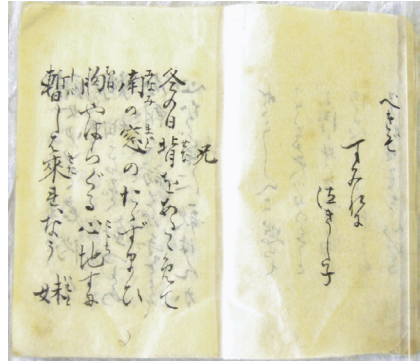 べきぞ
すゑに
泣きし子
兄
冬の日背をあたゝめて
南の窓のたゝずまひ
胸やはらぐる心地すな
暫しと乘れ、なう妹